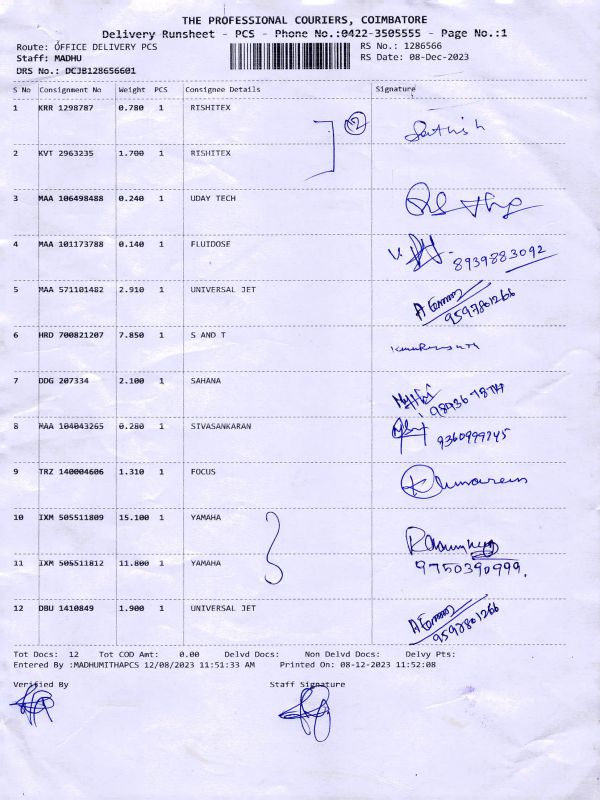 THE PROFESSIONAL COURIERS, COIMBATORE
Delivery Runsheet - PCS - Phone No.:0422-3505555 - Page No.:1
Route: OFFICE DELIVERY PCS RS No.: 1286566
Staff: MADHU RS Date: 08-Dec-2023
DRS No.: DCJB128656601
S No Consignment No Weight PCS Consignee Details Signature
1 KRR 1298787 0.780 1 RISHITEX 2 Sathish
2 KVT 2963235 1.700 1 RISHITEX
3 MAA 106498488 0.240 1 UDAY TECH
4 MAA 101173788 0.140 1 FLUIDOSE 8939883092
5 MAA 571101482 2.910 1 UNIVERSAL JET 9597801266
6 HRD 700821207 7.850 1 S AND T
7 DDG 207334 2.100 1 SAHANA
8 MAA 104043265 0.280 1 SIVASANKARAN 9360999745
9 TRZ 140004606 1.310 1 FOCUS
10 IXM 505511809 15.100 1 YAMAHA
11 IXM 505511812 11.800 1 YAMAHA 9750390999.
12 DBU 1410849 1.900 1 UNIVERSAL JET 9597801266
Tot Docs: 12 Tot COD Amt: 0.00 Delvd Docs: Non Delvd Docs: Delvy Pts:
Entered By :MADHUMITHAPCS 12/08/2023 11:51:33 AM Printed On: 08-12-2023 11:52:08
Verified By Staff Signature